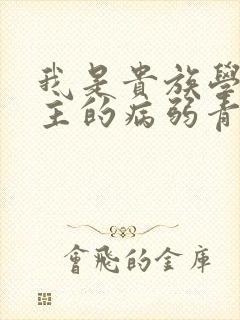 我是貴族學
主的病弱青
會飛的金庫